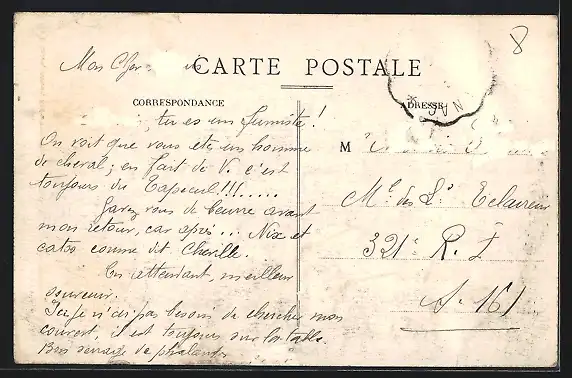 8
Mon Cher
CARTE POSTALE
CORRESPONDANCE
ADRESSE
tu es un fumiste!
On voit que vous êtes un homme
de cheval; en fait de V. c'est
toujours du Tapecul!!!.....
de beurre avant
mon retour, car après... Nix et
comme dit Cherille.
En attendant, meilleur
souvenir.
Ici je n'ai pas besoin de chercher mon
couvert, il est toujours sur la table.
Bon
M
Mal des L. Eclaireur
321e R. I
S. 161